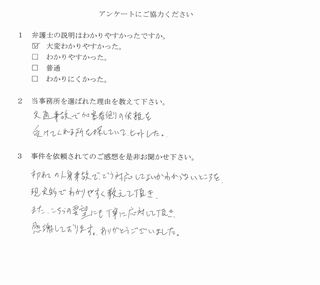 アンケートにご協力ください
1 弁護士の説明はわかりやすかったですか。
☑ 大変わかりやすかった。
□ わかりやすかった。
□ 普通
□ わかりにくかった。
2 当事務所を選ばれた理由を教えて下さい。
交通事故で加害者側の依頼を
受けてくれる所を探していて ヒットした。
3 事件を依頼されてのご感想を是非お聞かせ下さい。
初めての人身事故でどう対応してよいかわからないところを
現実的でわかりやすく教えて頂き、
また、こちらの要望にも丁寧に応対して頂き、
感謝しております。ありがとうございました。